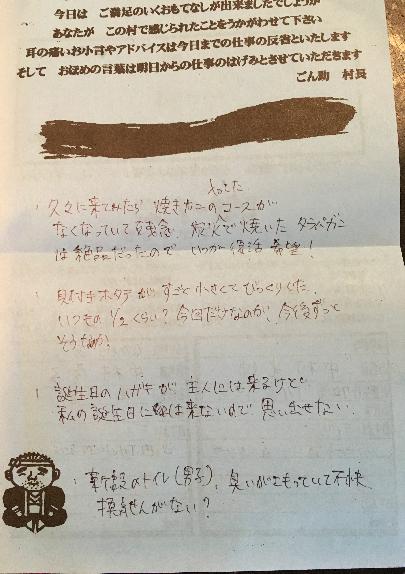 今日は ご満足のいくおもてなしが出来ましたでしょうか
あなたが この村で感じられたことをうかがわせて下さい
耳の痛いお小言やアドバイスは今日までの仕事の反省といたします
そして おほめの言葉は明日からの仕事のはげみとさせていただきます
ごん助 村長
久々に来てみたら 焼きガニのコースが
なくなっていて残念。炭火で焼いた タラバガニ
は絶品だったので いつか復活 希望！
貝付きホタテが すごく小さくてびっくりした。
いつもの 1/2くらい？今回だけなのか？今後ずっと
そうなのか！
誕生日のハガキが 主人には来るけど
私の誕生日には来ないので 思い出せない。
のトイレ(男子)、臭いがこもっていて不快
換気せんがない？